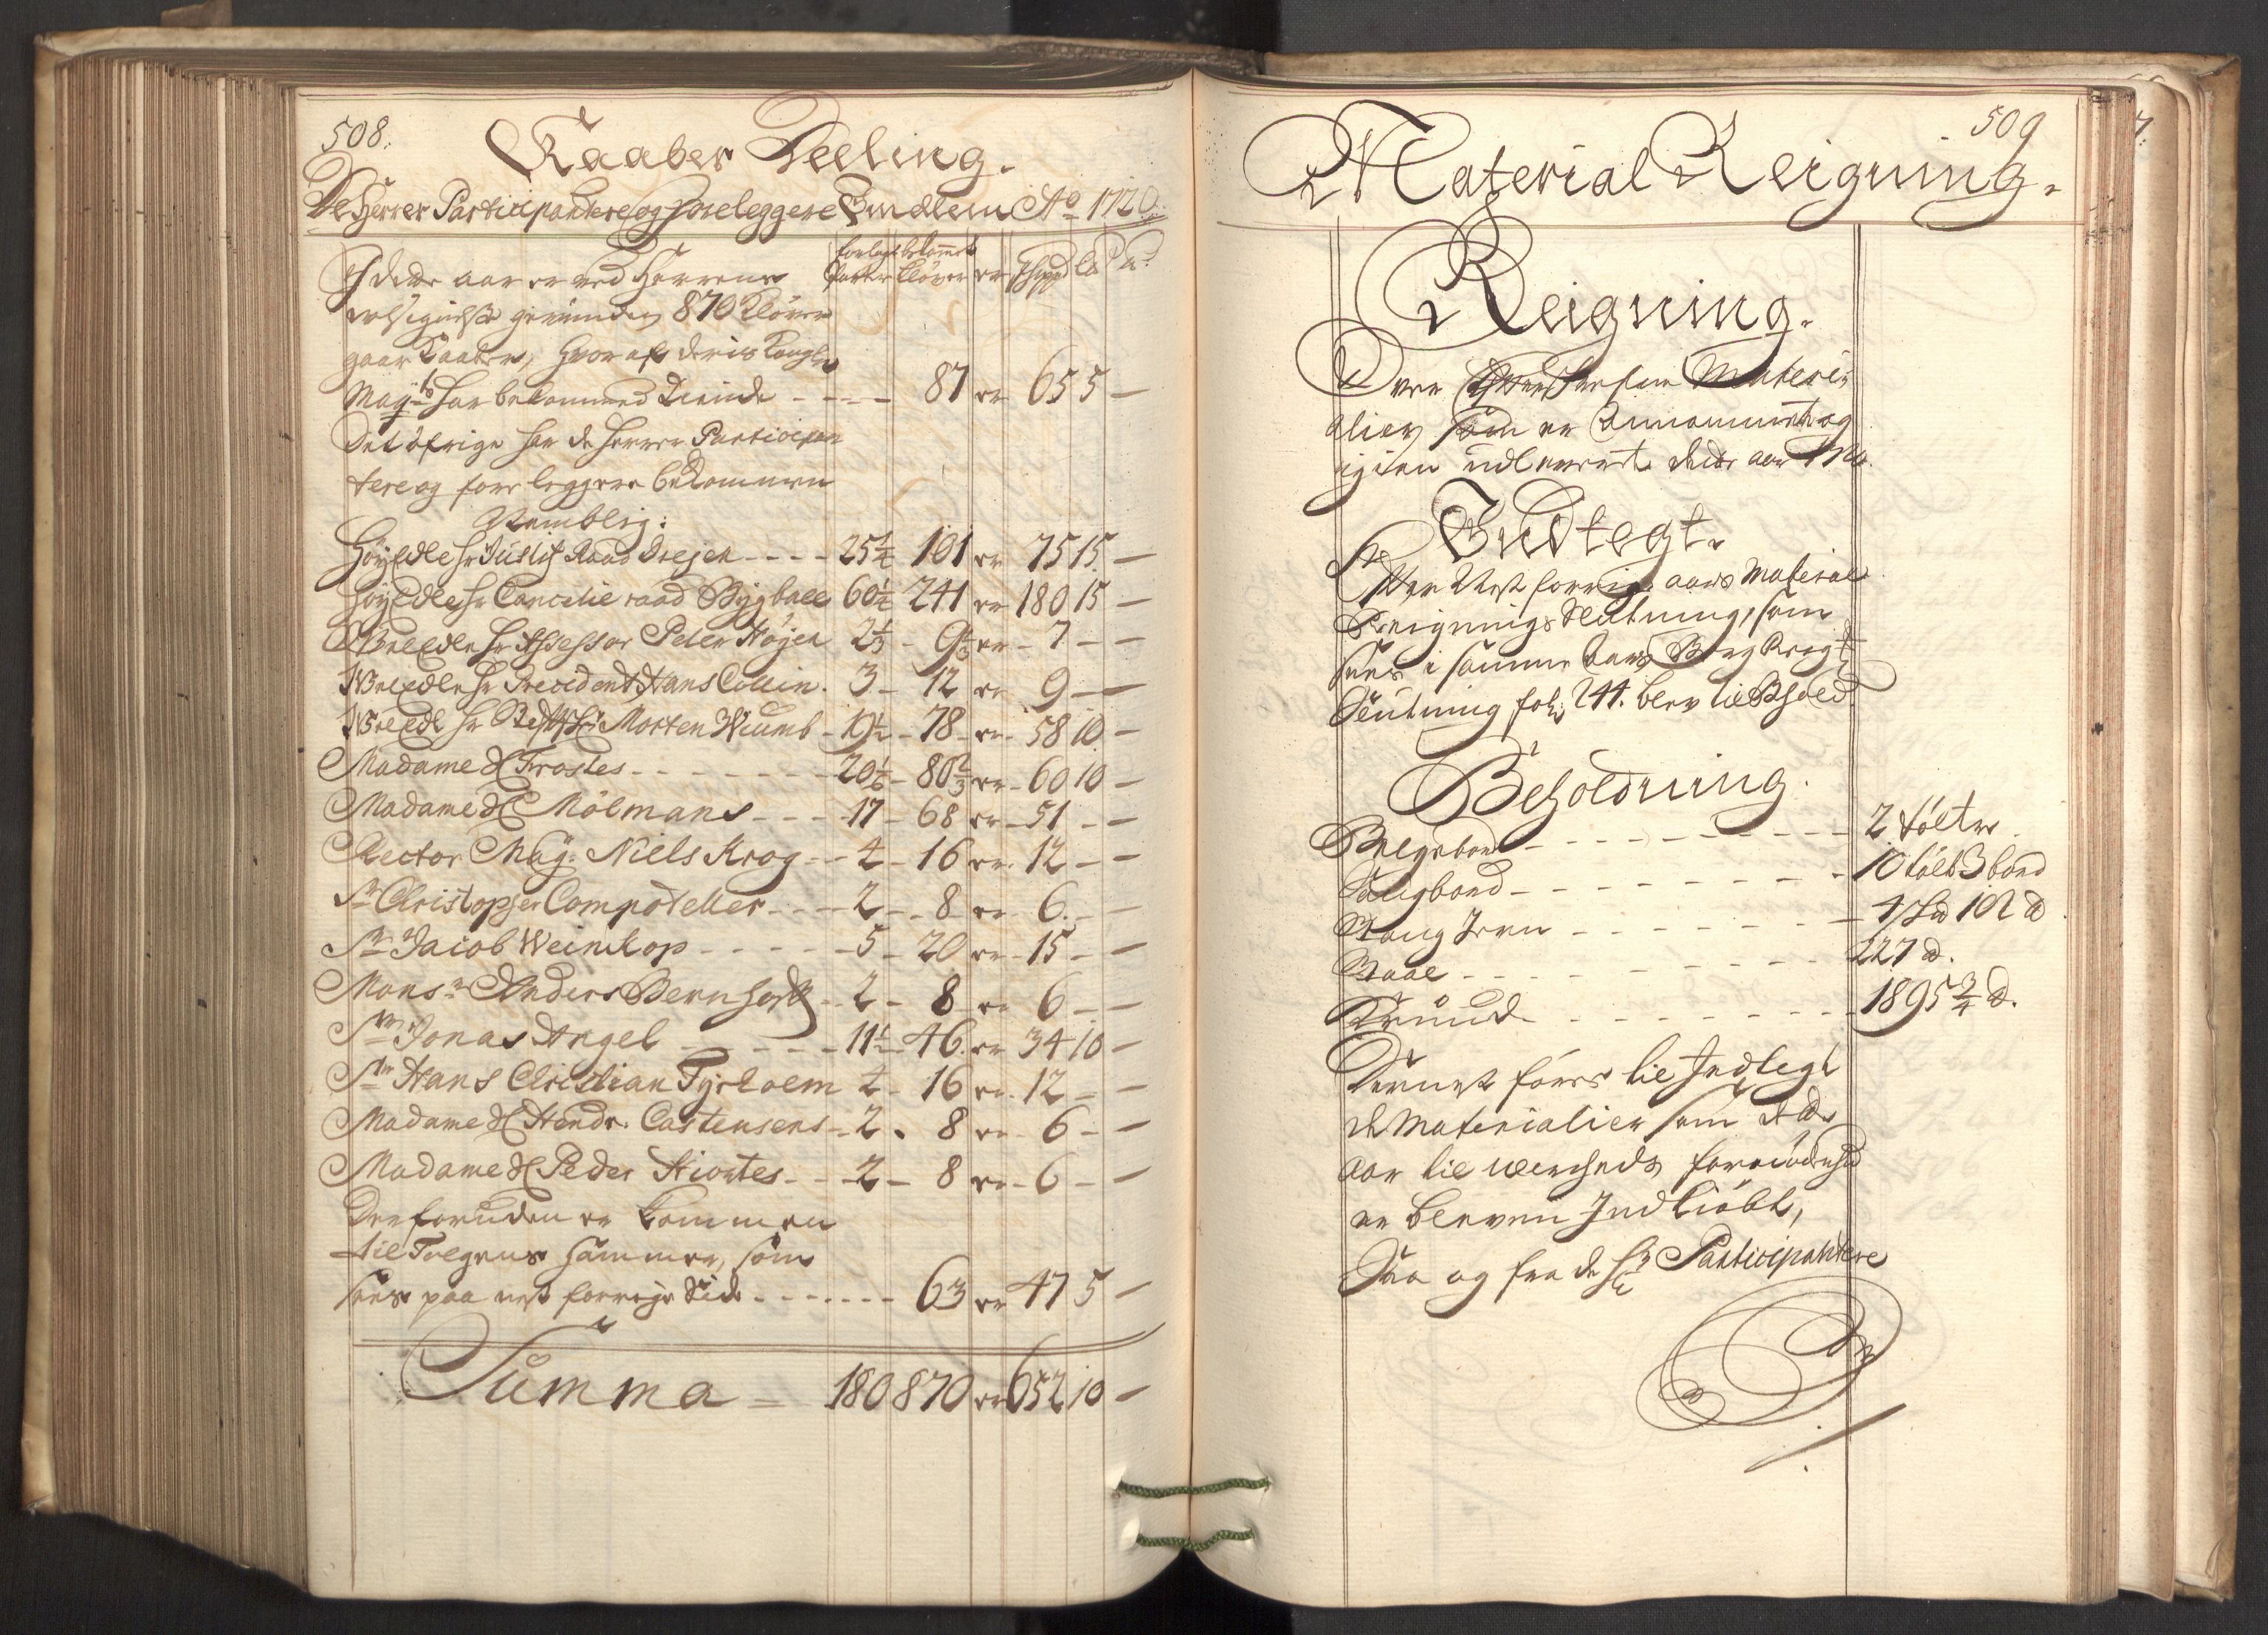 508.
Kaaber Deeling.
De Herrer Participantere og Foreleggere Emellem Ao 1720.
forlags bekommet
Parter Kløver er Schpd L℔ ℔
I dette aar er ved Herrens
velsignelse gevunden 870 Kløver
gaar Kaaber, hvor af deris Kongl.
Mayts har bekommed tiende - - - 87 er 65 5 -
Det öfrige har de herrer Participan
tere og foreleggere bekommen
Nemblig:
HöyEdle hr Justitz Raad Drejer - - - - 25¼ 101 er 75 15. -
HöyEdle hr Cancelie raad Bygball 60¼ 241 er 180 15 -
WelEdle hr Assessor Peter Höyer 2⅓ - 9⅓ er - 7 - -
WelEdle hr Precident Hans Collin. 3 - 12 er 9 - -
WelEdl hr Morten Wiumb - 19½ - 78 - er - 58 10. -
Madame Sl Frostes - - - - - - - 20⅙ - 80⅔ er - 60 10 -
Madame Sl Mölmans - - - - 17 - 68 er - 51 - -
Rector Mag. Niels Krog - - 4 - 16 er. 12 - -
Sr Christopher Compsteller - - - - 2 - - 8 - er - 6. - -
Sr Jacob Weinkop - - - - - 5 - 20 er - 15 - -
Monsr Anders Bernhoft - - 2 - 8 - er 6 - -
Sr Jonas Angel - - - - - 11½ - 46. er 34 10 -
Sr Hans Christian Tyrholm 4 - 16 er. 12 - -
Madame Sl Hendr. Castensens - - 2. - 8 er - 6 - -
Madame Sl Peder Hiortes - - - 2 - 8 er - 6 - -
Der foruden er kommen
til Folgens Summer, som
sees paa nest forrige Side - - - - - - - 63 er 47 5 -
Summa - 180 870 er 652 10 -
509
Material Reigning.
Reigning.
Over Materi
alier som er Annammet og
igien udleveret dette aar 1720.
Indtegt.
Efter Nest forrige aars Material
Reignings Slutning, som
sees i samme Aars Berg Regt
Slutning fol: 244. blev til Behold
Beholdning.
Belgebord - - - - - - - - - 2 tölter.
Saugbord - - - - - - - - 10 tölt 3 bord
Stang Jern - - - - - - - 4 102 ℔
Staal - - - - - - - - 227 ℔.
Krud - - - - - - - - 1895¾ ℔.
Dernest föres til Indtegt
de Materialier som dette
Aar til Werchets fornödenhed
er bleven Indkiöbt,
Saa og fra de Hr Participantere